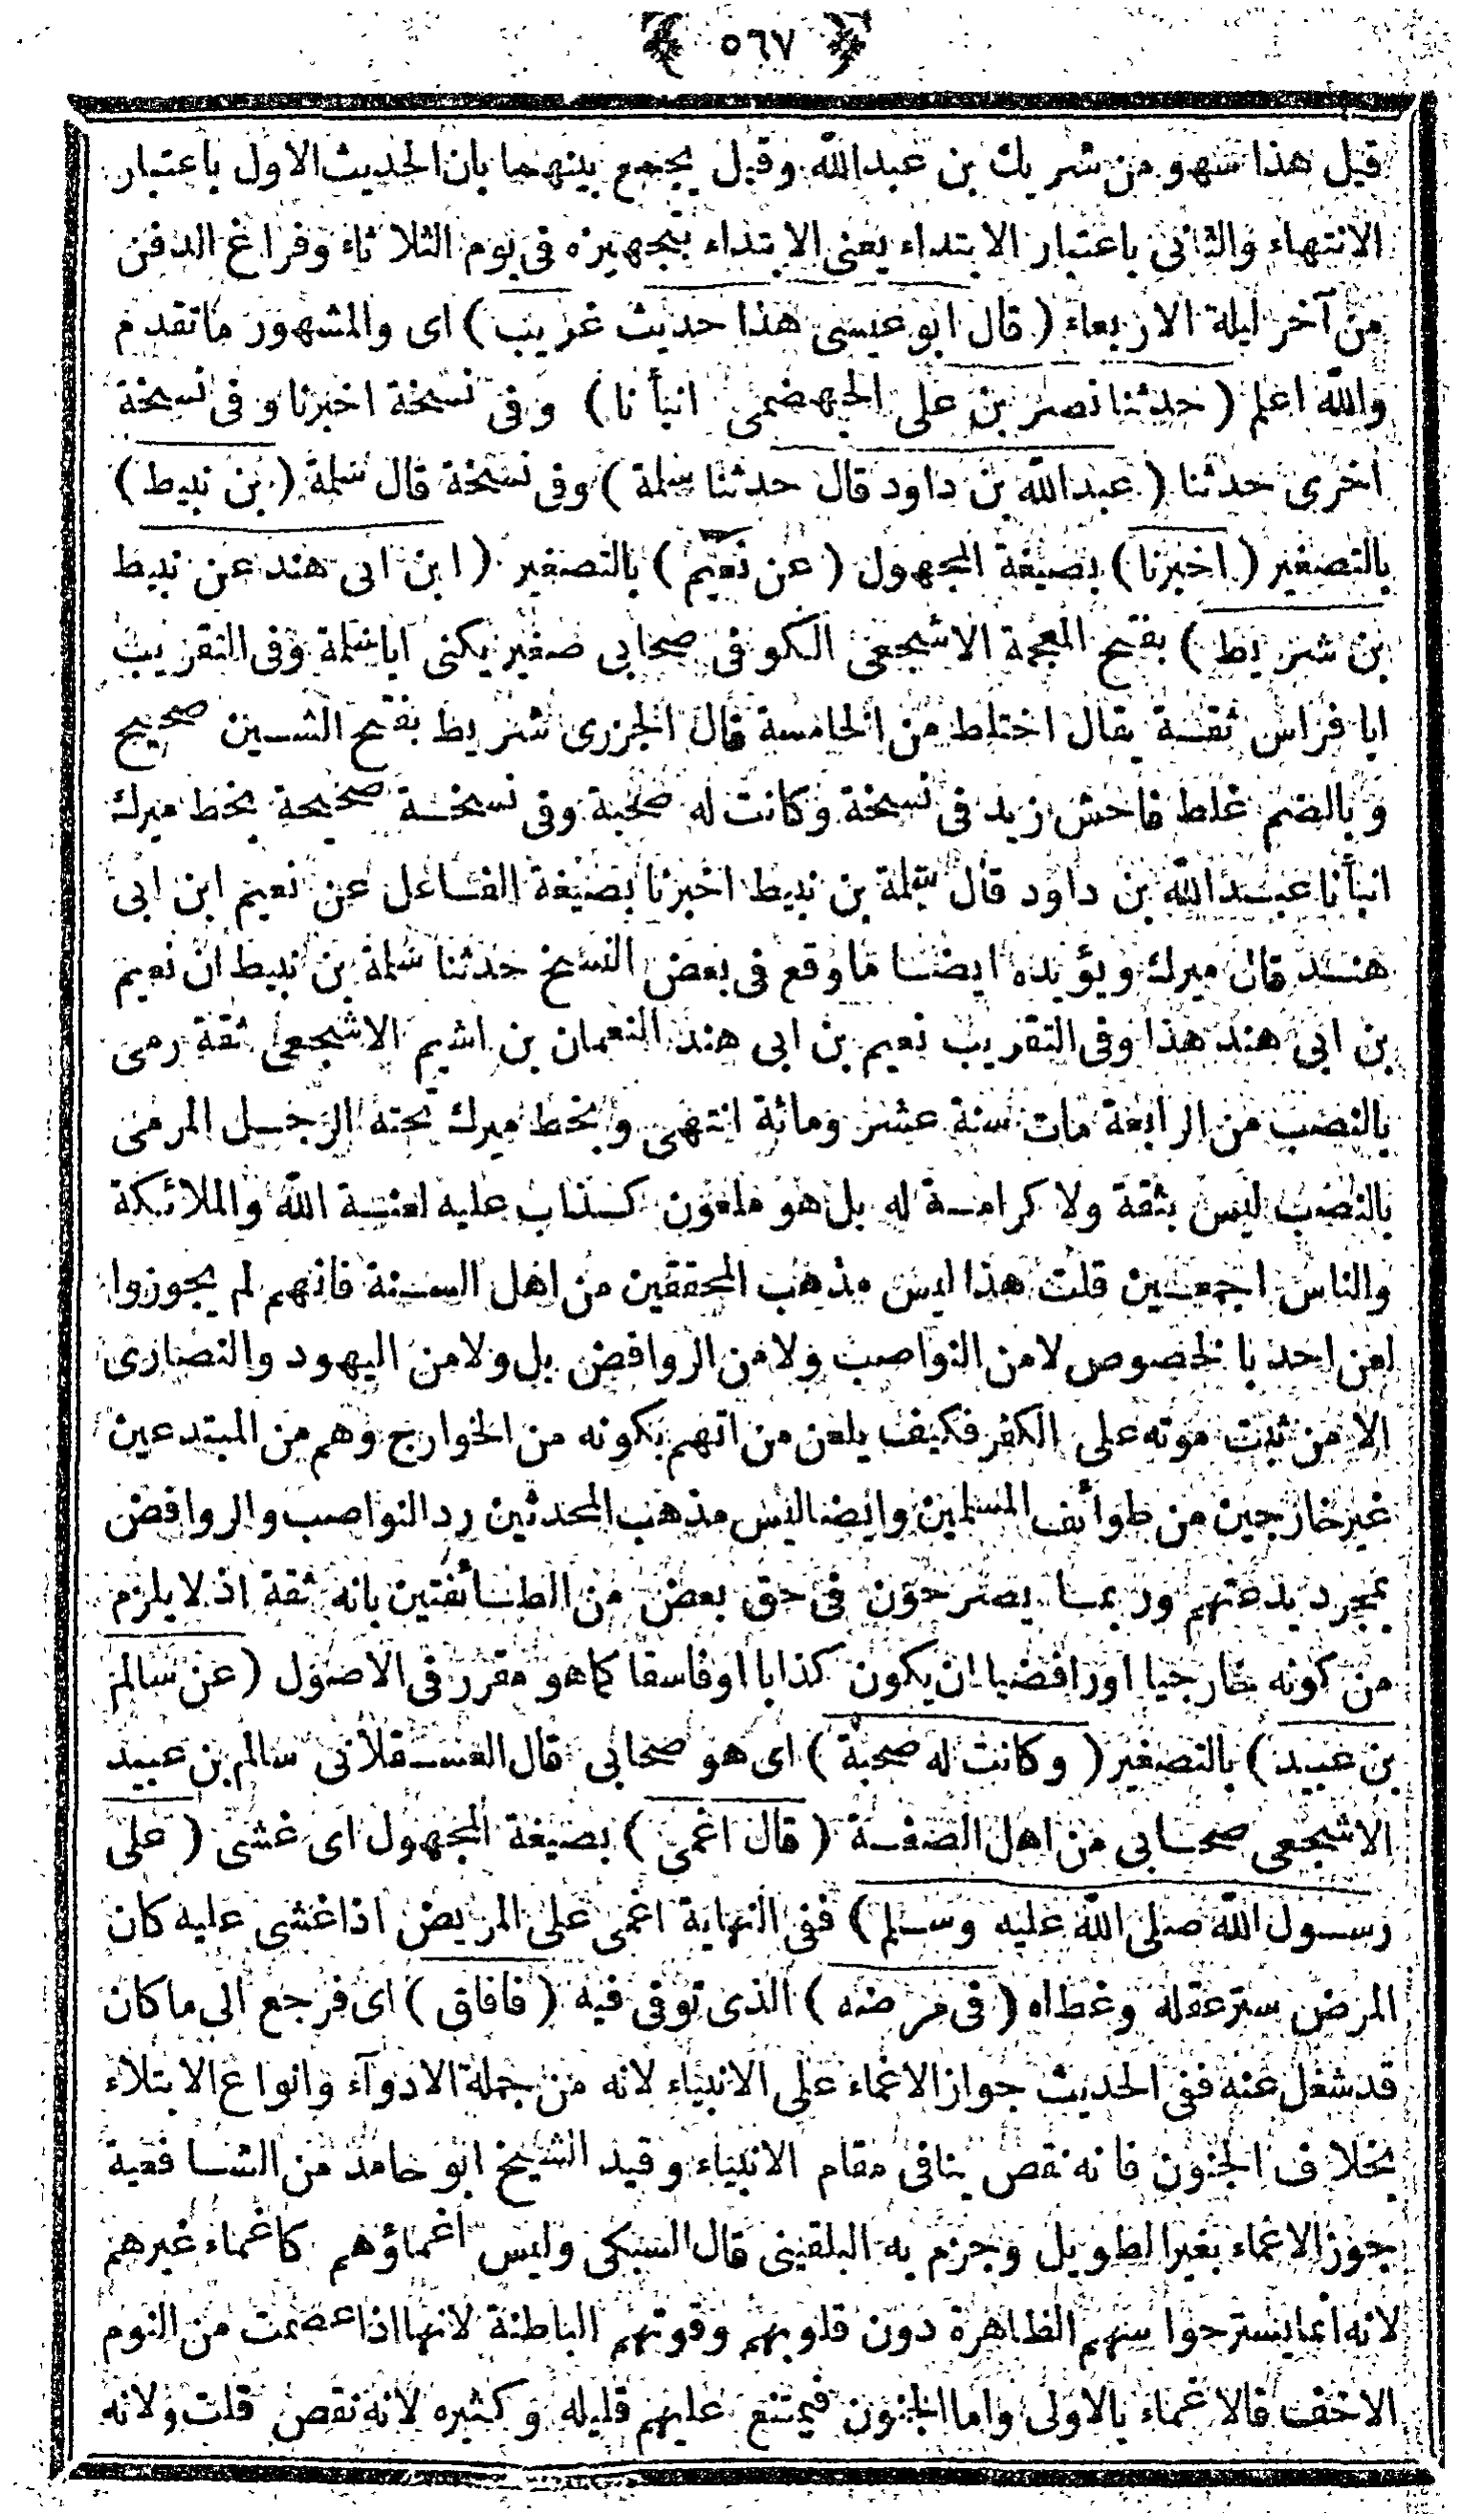 ٥٦٧
قيل هذا سهو من شريك بن عبدالله وقيل يجمع بينهما بان الحديث الاول باعتبار
الانتهاء والثانى باعتبار الابتداء يعنى الابتداء بتجهيزه فى يوم الثلاثاء وفراغ الدفن
من آخر ليلة الاربعاء ( قال ابو عيسى هذا حديث غريب ) اى والمشهور ماتقدم
والله اعلم ( حدثنا نصر بن على الجهضمى انبأنا ) وفى نسخة اخبرنا وفى نسخة
اخرى حدثنا ( عبدالله بن داود قال حدثنا سلمة ) وفى نسخة قال سلمة ( بن نبيط )
بالتصغير ( اخبرنا ) بصيغة المجهول ( عن نعيم ) بالتصغير ( ابن ابى هند عن نبيط
بن شريط ) بفتح المعجمة الاشجعى الكوفى صحابى صغير يكنى اباسلمة وفى التقريب
ابا فراس ثقة يقال اختلط من الخامسة قال الجزرى شريط بفتح الشين صحيح
وبالضم غلط فاحش زيد فى نسخة وكانت له صحبة وفى نسخة صحيحة بخط ميرك
انبأنا عبدالله بن داود قال سلمة بن نبيط اخبرنا بصيغة الفاعل عن نعيم ابن ابى
هند قال ميرك ويؤيده ايضا ماوقع فى بعض النسخ حدثنا سلمة بن نبيط ان نعيم
بن ابى هند هذا وفى التقريب نعيم بن ابى هند النعمان بن اشيم الاشجعى ثقة رمى
بالنصب من الرابعة مات سنة عشر ومائة انتهى وبخط ميرك تحته الرجل المرمى
بالنصب ليس بثقة ولا كرامة له بل هو ملعون كذاب عليه لعنة الله والملائكة
والناس اجمعين قلت هذا ليس مذهب المحققين من اهل السنة فانهم لم يجوزوا
لعن احد بالخصوص لا من النواصب ولا من الروافض بل ولا من اليهود والنصارى
الا من ثبت موته على الكفر فكيف يلعن من اتهم بكونه من الخوارج وهم من المبتدعين
غير خارجين من طوائف المسلمين وايضا ليس مذهب المحدثين رد النواصب والروافض
بمجرد بدعتهم وربما يصرحون فى حق بعض من الطائفتين بانه ثقة اذ لا يلزم
من كونه خارجيا او رافضيا ان يكون كذابا او فاسقا كما هو مقرر فى الاصول ( عن سالم
بن عبيد ) بالتصغير ( وكانت له صحبة ) اى هو صحابى قال العسقلانى سالم بن عبيد
الاشجعى صحابى من اهل الصفة ( قال اغمى ) بصيغة المجهول اى غشى ( على
رسول الله صلى الله عليه وسلم ) ففى النهاية اغمى على المريض اذا غشى عليه كان
المرض ستر عقله وغطاه ( فى مرضه ) الذى توفى فيه ( فافاق ) اى فرجع الى ما كان
قد شغل عنه ففى الحديث جواز الاغماء على الانبياء لانه من جملة الادوآء وانواع الابتلاء
بخلاف الجنون فانه نقص ينافى مقام الانبياء وقيد الشيخ ابو حامد من الشافعية
جوز الاغماء بغير الطويل وجزم به البلقينى قال السبكى وليس اغماؤهم كاغماء غيرهم
لانه انما يستر حواسهم الظاهرة دون قلوبهم وقوتهم الباطنة لانها اذا عصمت من النوم
الاخف فالاغماء بالاولى واما الجنون فيمتنع عليهم قليله وكثيره لانه نقص قلت ولانه